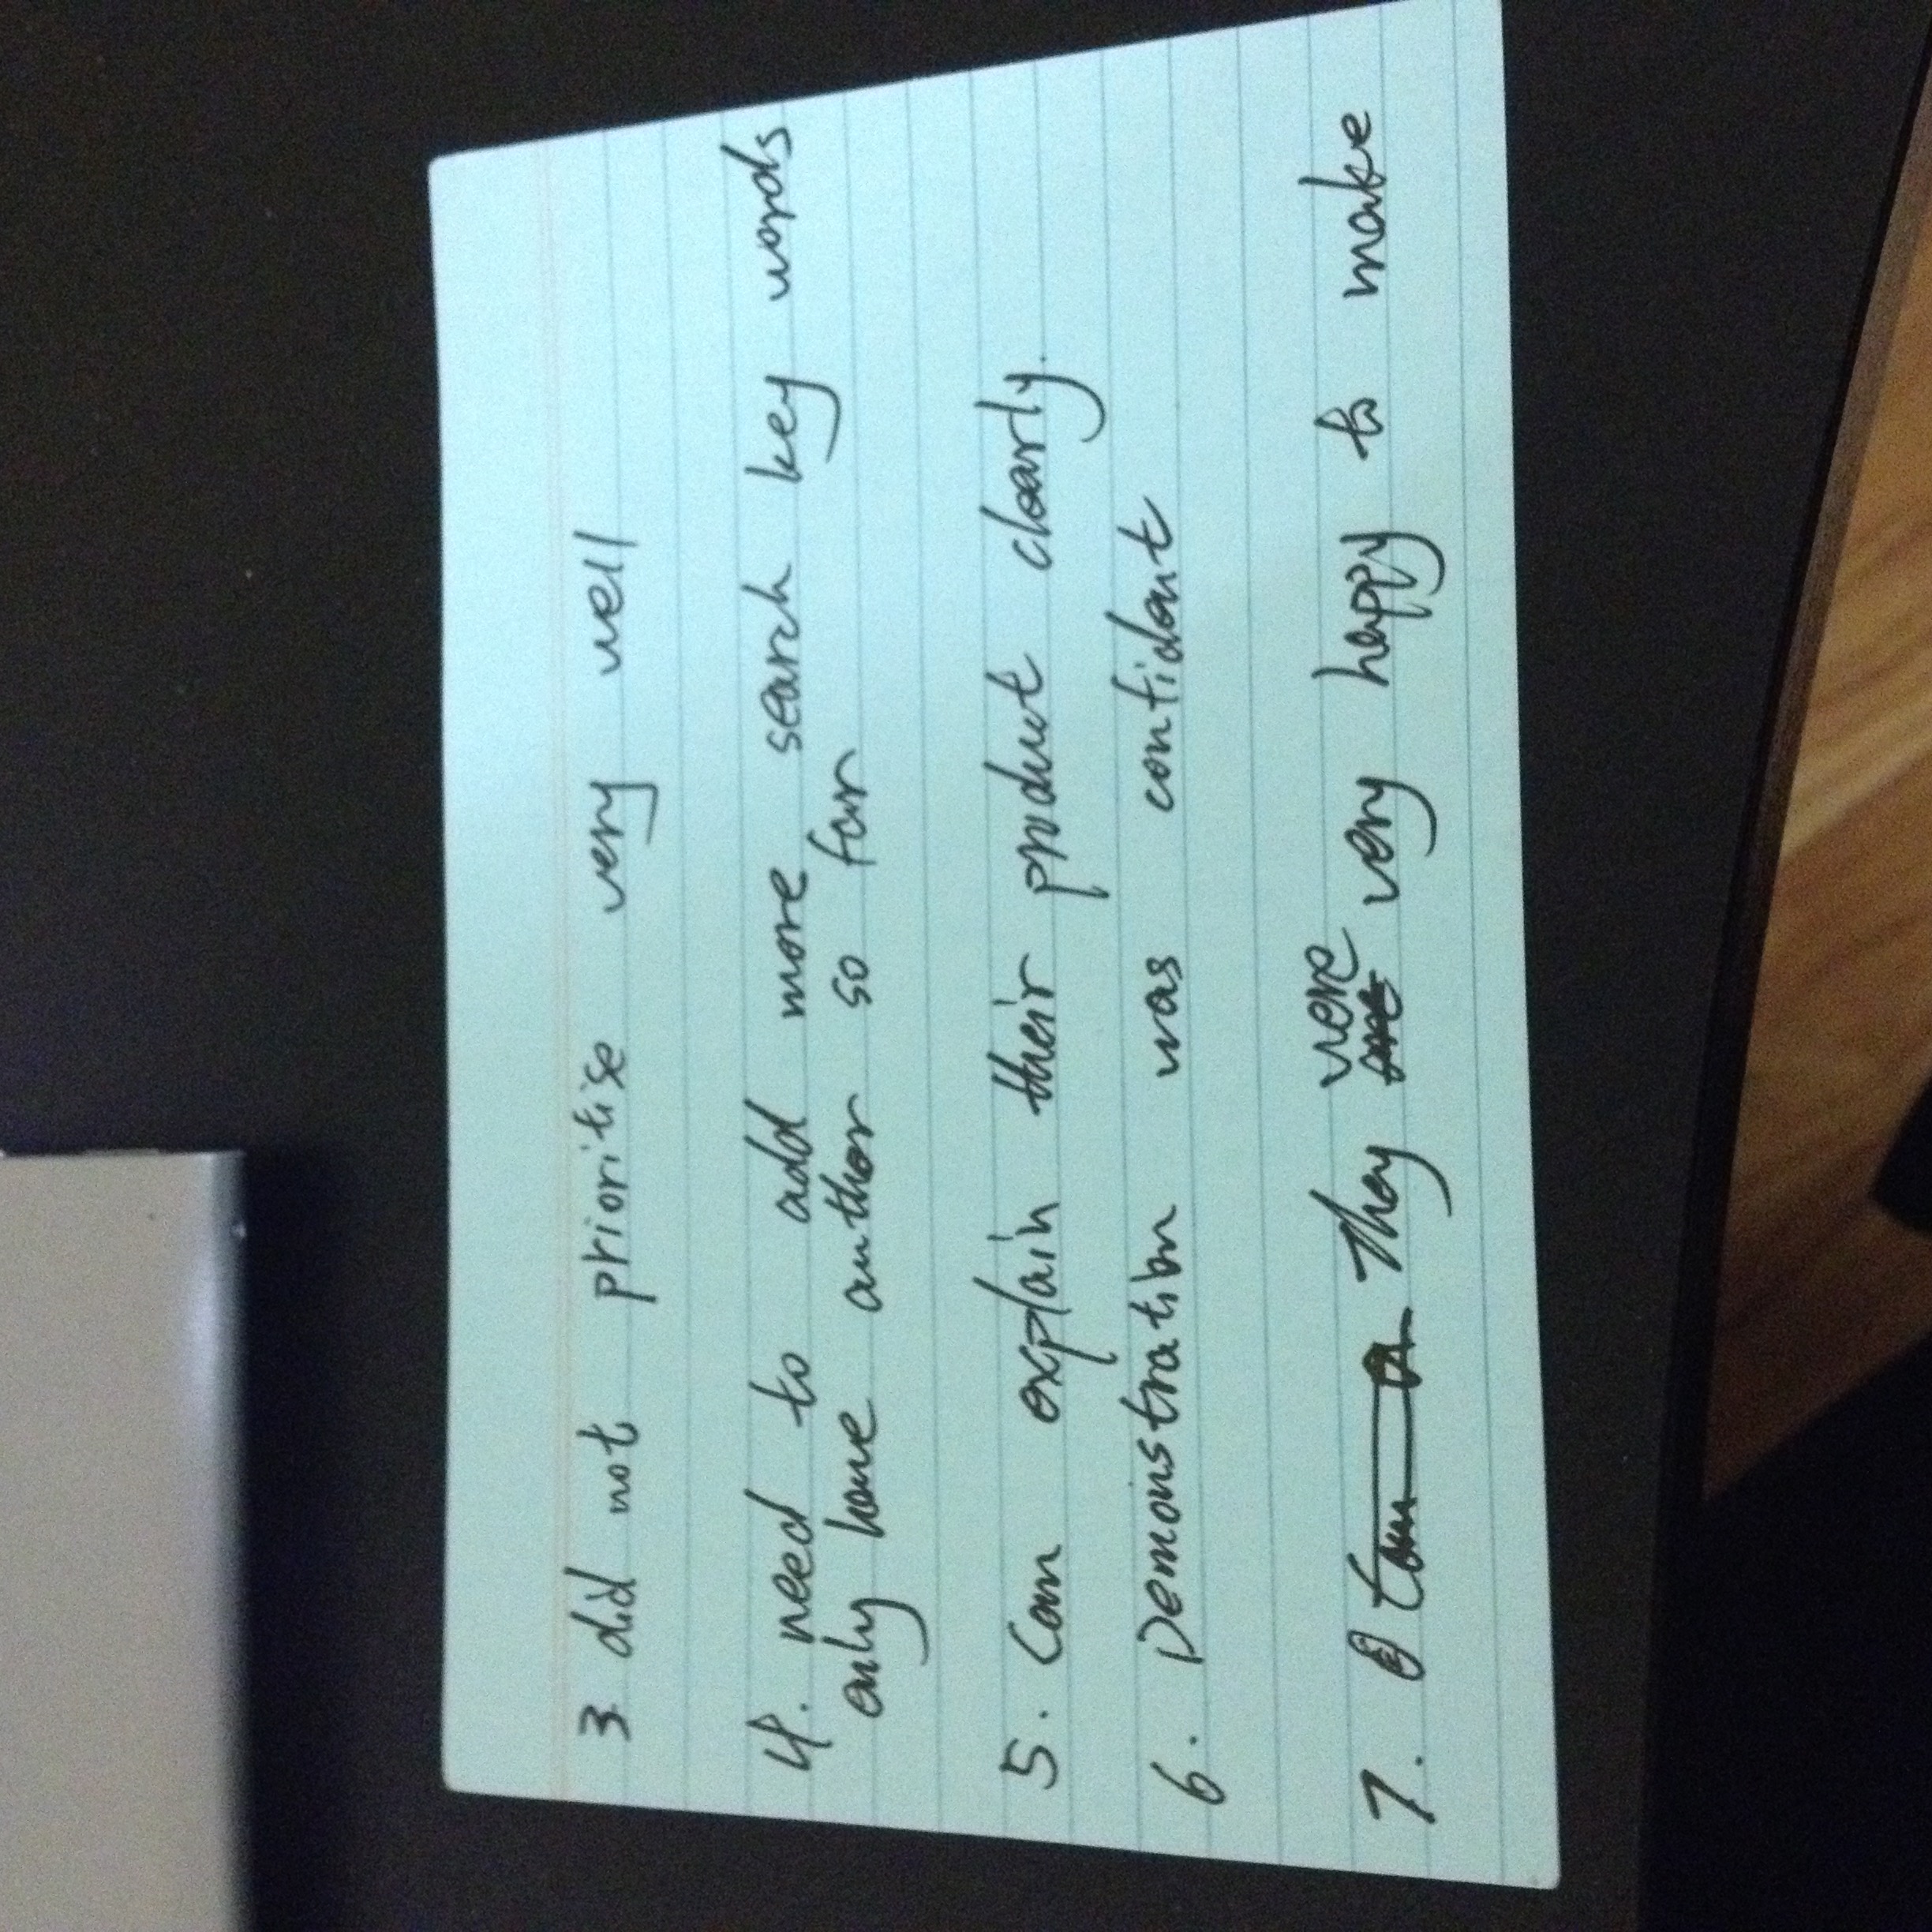 3. did not prioritise very well
4. need to add more search key words
only have author so far
5. Can explain their product clearly.
6. Demonstration was confident
7. They were very happy to make